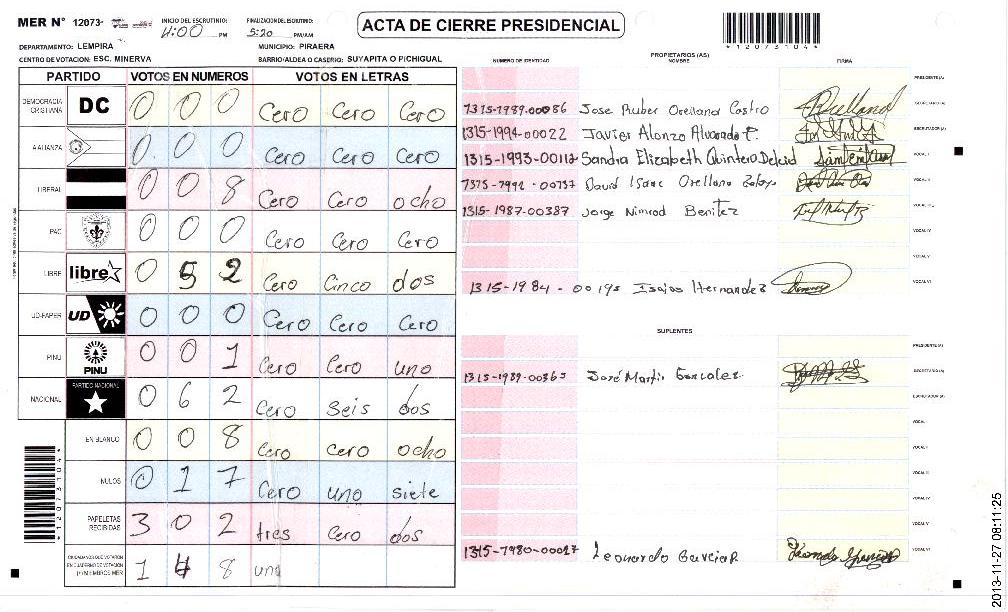 MER N° 12073 INICIO DEL ESCRUTINIO: 4:00 PM FINALIZACION DEL ESCRUTINIO: 5:20 PM/AM ACTA DE CIERRE PRESIDENCIAL *12073104*
DEPARTAMENTO: LEMPIRA MUNICIPIO: PIRAERA
CENTRO DE VOTACION: ESC. MINERVA BARRIO/ALDEA O CASERIO: SUYAPITA O PICHIGUAL
PROPIETARIOS (AS)
NUMERO DE IDENTIDAD NOMBRE FIRMA
PARTIDO VOTOS EN NUMEROS VOTOS EN LETRAS
DEMOCRACIA CRISTIANA DC 0 0 0 Cero Cero Cero
AALIANZA 0 0 0 Cero Cero Cero
LIBERAL 0 0 8 Cero Cero ocho
PAC 0 0 0 Cero Cero Cero
LIBRE libre 0 5 2 Cero Cinco dos
UD-FAPER UD 0 0 0 Cero Cero Cero
PINU PINU 0 0 1 Cero Cero uno
NACIONAL PARTIDO NACIONAL 0 6 2 Cero Seis dos
EN BLANCO 0 0 8 Cero cero ocho
NULOS 0 1 7 Cero uno siete
PAPELETAS RECIBIDAS 3 0 2 tres Cero dos
CIUDADANOS QUE VOTARON EN CUADERNO DE VOTACION (+) MIEMBROS MER 1 4 8 uno
*12073104*
PRESIDENTE (A)
1315-1989-00086 Jose Ruber Orellana Castro SECRETARIO (A)
1315-1994-00022 Javier Alonzo Alvarado F. ESCRUTADOR (A)
1315-1993-00112 Sandra Elizabeth Quintero Delcid VOCAL I
David Isaac Orellana VOCAL II
1315-1987-00387 Jorge Nimrod Benitez VOCAL III
VOCAL IV
VOCAL V
1315-1984-00195 Isaias Hernandez VOCAL VI
SUPLENTES
PRESIDENTE (A)
1315-1989-00365 José Martir Gonzales SECRETARIO (A)
ESCRUTADOR (A)
VOCAL I
VOCAL II
VOCAL III
VOCAL IV
VOCAL V
1315-1980-00017 Leonardo Garcia R. VOCAL VI
2013-11-27 08:11:25